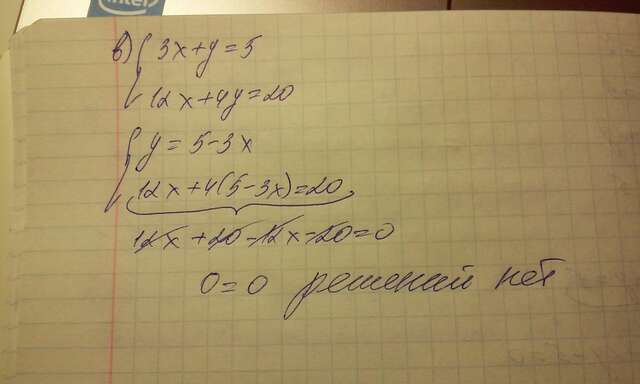 intel
в) { 3x+y=5
12x+4y=20
{ y=5-3x
12x+4(5-3x)=20
12x+20-12x-20=0
0=0 решений нет